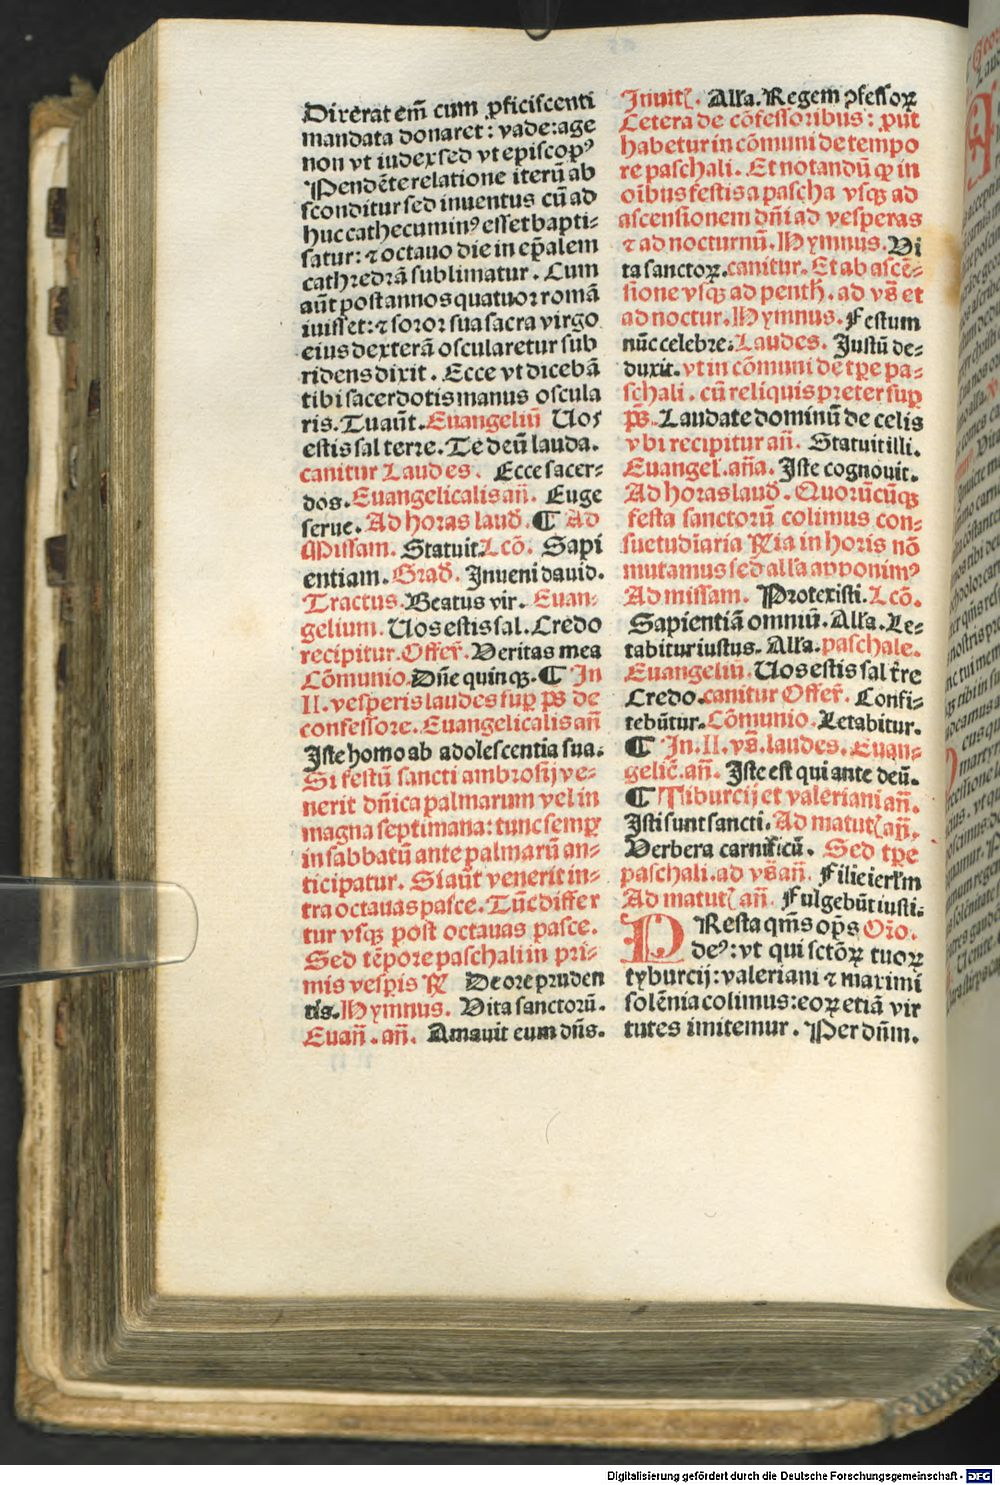 Dixerat em̄ cum ꝓficiscenti
mandata donaret: vade: age
non vt iudex sed vt episcopꝰ
Pendēte relatione iterū ab
sconditur sed inuentus cū ad
huc cathecuminꝰ esset bapti-
satur: ⁊ octauo die in ep̄alem
cathedrā sublimatur. Cum
aūt post annos quatuor romā
iuisset: ⁊ soror sua sacra virgo
eius dexterā oscularetur sub
ridens dixit. Ecce vt dicebā
tibi sacerdotis manus oscula
ris. Tu aūt. Euangeliū Uos
estis sal terre. Te deū lauda.
canitur Laudes. Ecce sacer-
dos. Euangelicalis an̄. Euge
serue. Ad horas laud̄. ¶ Ad
Missam. Statuit. Lcō. Sapi
entiam. Grad̄. Inueni dauid.
Tractus. Beatus vir. Euan-
gelium. Uos estis sal. Credo
recipitur. Offer̄. Veritas mea
Cōmunio. Dn̄e quinqꝫ. ¶ In
II. vesperis laudes suꝑ p̄s de
confessore. Euangelicalis an̄
Iste homo ab adolescentia sua.
Si festū sancti ambrosij ve-
nerit dn̄ica palmarum vel in
magna septimana: tunc semꝑ
in sabbatū ante palmarū an-
ticipatur. Si aūt venerit in-
tra octauas pasce. Tūc differ
tur vsqꝫ post octauas pasce.
Sed tēpore paschali in pri-
mis vesp̄is ℟ De ore pruden
tis. Hymnus. Vita sanctorū.
Euan̄. an̄. Amauit eum dn̄s.
Inuit̄. Alľa. Regem ↄfessoꝝ
Cetera de cōfessoribus: ꝓut
habetur in cōmuni de tempo
re paschali. Et notandū ꝙ in
oībus festis a pascha vsqꝫ ad
ascensionem dn̄i ad vesperas
⁊ ad nocturnū. Hymnus. Vi
ta sanctoꝝ. canitur. Et ab ascē-
sione vsqꝫ ad penth̄. ad vs̄ et
ad noctur. Hymnus. Festum
nūc celebre. Laudes. Iustū de-
duxit. vt in cōmuni de tp̄e pa-
schali. cū reliquis preter suꝑ
p̄s. Laudate dominū de celis
vbi recipitur an̄. Statuit illi.
Euangel̄. an̄a. Iste cognouit.
Ad horas laud̄. Quorūcūqꝫ
festa sanctorū colimus con-
suetudiaria ℟ia in horis nō
mutamus sed alľa apponimꝰ
Ad missam. Protexisti. Lcō.
Sapientiā omniū. Alľa. Le-
tabitur iustus. Alľa. paschale.
Euangeliū. Uos estis sal t̄re
Credo. canitur Offer̄. Confi-
tebūtur. Cōmunio. Letabitur.
¶ In. II. vs̄. laudes. Euan-
gelic̄. an̄. Iste est qui ante deū.
¶ Tiburcij et valeriani an̄.
Isti sunt sancti. Ad matut̄ an̄.
Verbera carnificū. Sed tp̄e
paschali. ad vs̄ an̄. Filie ierľm
Ad matut̄ an̄. Fulgebūt iusti.
PResta qm̄s op̄s Orō.
deꝰ: vt qui sctōꝝ tuoꝝ
tyburcij: valeriani ⁊ maximi
solēnia colimus: eoꝝ etiā vir
tutes imitemur. Per dn̄m.
Digitalisierung gefördert durch die Deutsche Forschungsgemeinschaft - DFG